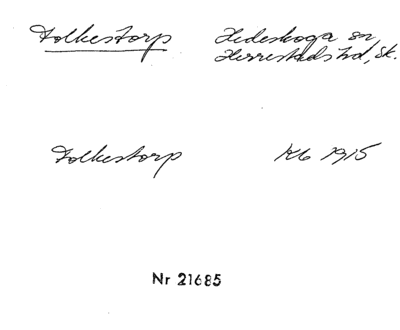 Folkestorp Hedeskoga sn,
Herrestads hd, Sk.
Folkestorp Kb 1915
Nr 21685